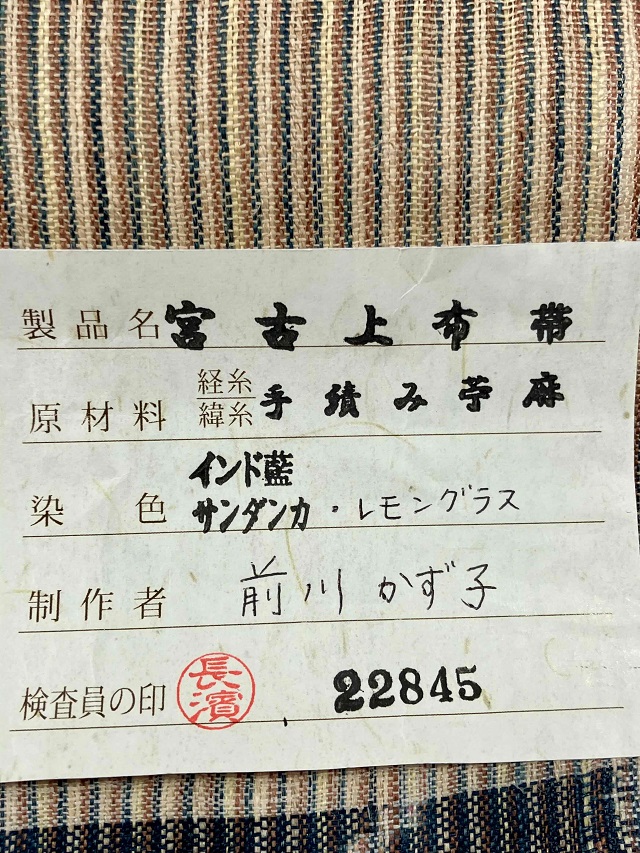 製品名 宮古上布帯
原材料 経糸 緯糸 手績み苧麻
インド藍
染色 サンダンカ・レモングラス
制作者 前川かず子
検査員の印 長濱 22845